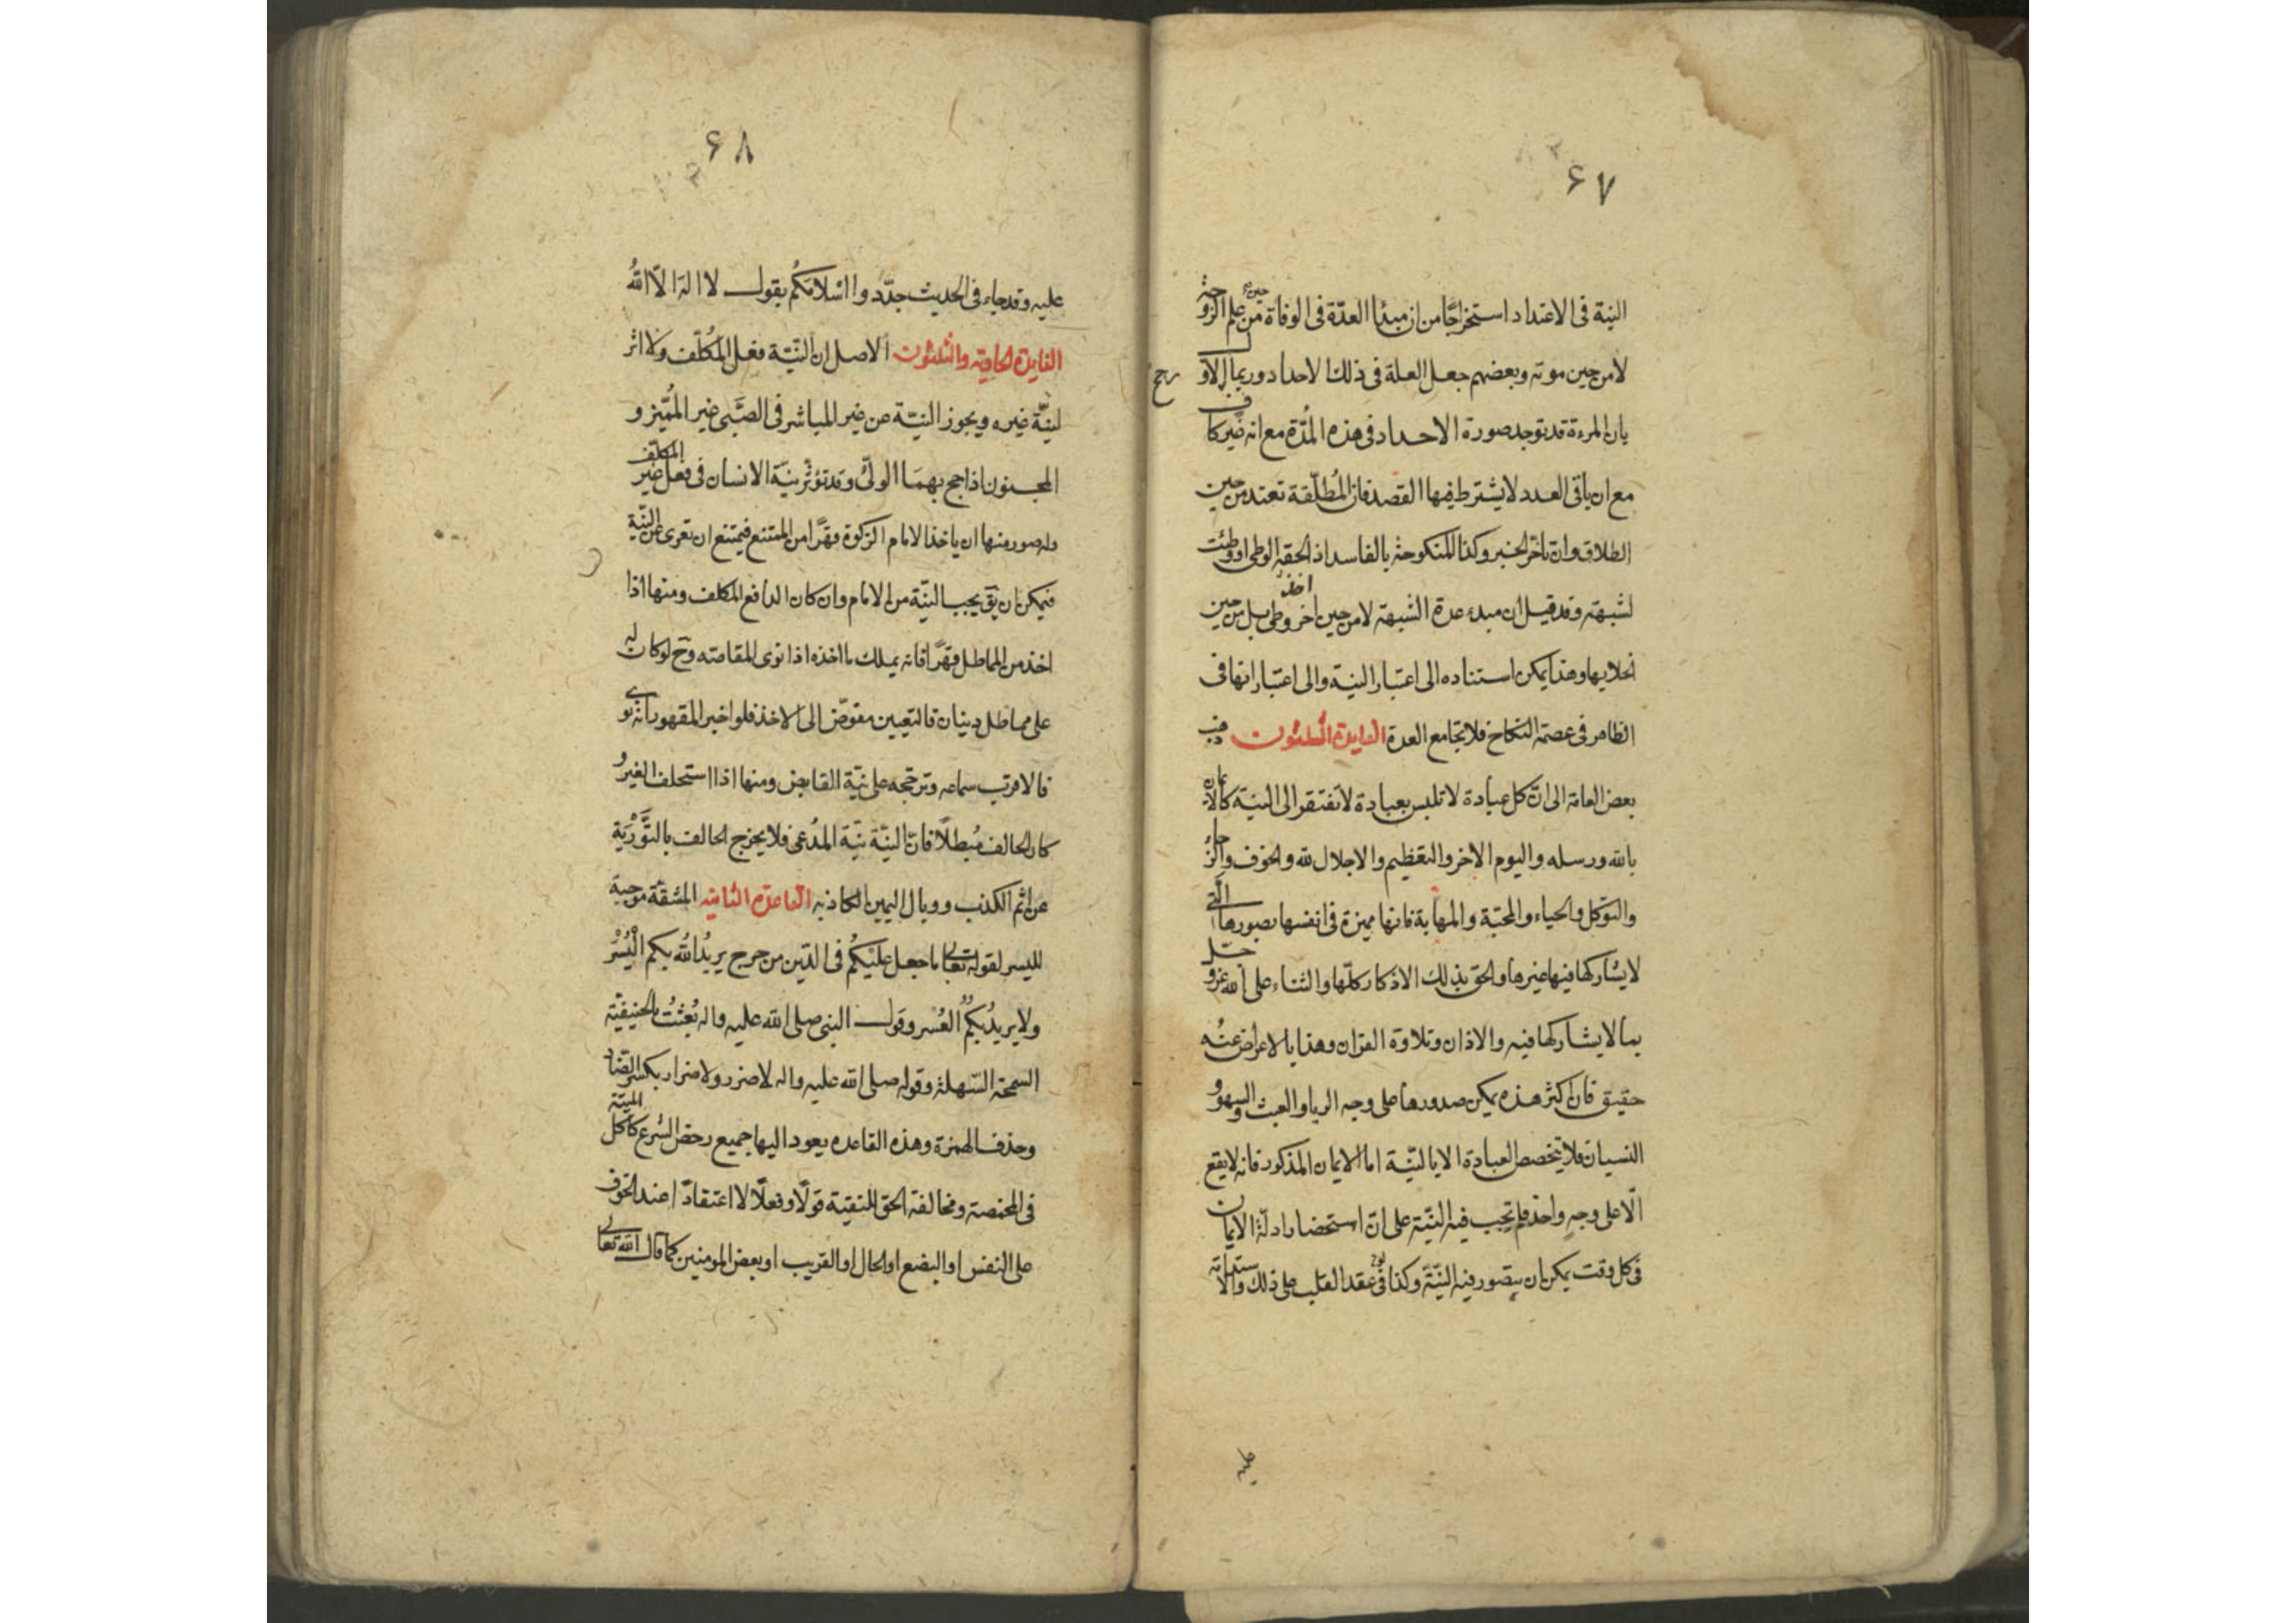 ۶۷
النية فى الاعتداد استخراجًا من ان مبدأ العدّة فى الوفاة من حين علم الزوجة
لا من حين موته وبعضهم جعل العلة فى ذلك الاحداد وربما الاول
بان المرءة قد توجد صورة الاحداد فى هذه المدّة مع انه غير كاف
مع ان باقى العدد لا يشترط فيها القصد فان المُطلّقة تعتد من حين
الطلاق وان تاخّر الخبر وكذا المنكوحة بالفاسد اذا لحقه الوطى او وطئت
لشبهة وقد قيل ان مبدء عدة الشبهة لا من حين اخر وطى بل من حين
انجلايها وهذا يمكن استناده الى اعتبار النية والى اعتبار انها فى
الظاهر فى عصمة النكاح فلا تجامع العدة الفايدة الثلثون ذهب
بعض العامة الى انّ كل عبادة لا تلبس بعبادة لا تفتقر الى النية كالايمان
بالله ورسله واليوم الاخر والتعظيم والاجلال لله والخوف والرجاء
والتوكل والحياء والمحبّة والمهابة فانها مميزة فى انفسها بصورها التى
لا يشاركها فيها غيرها والحق بذلك الاذكار كلّها والثناء على الله عزو جل
بما لا يشاركها فيه والاذان وتلاوة القران وهذا بالاعراض عنه
حقيق فان اكثر هذه يمكن صدورها على وجه الريا والعبث والسهو و
النسيان فلا يتخصص العبادة الا بالنيّة اما الايمان المذكور فانه لا يقع
الّا على وجه واحد فلم تجب فيه النيّة على انّ استحضار ادلّة الايمان
فى كل وقت يمكن ان يتصور فيه النيّة وكذا فى عقد القلب على ذلك والاستدامة
عليه
۶۸
عليه وقد جاء فى الحديث جدّدوا اسلامكُم بقول لا اله الّا اللهُ
الفايدة الحادية والثلثون الاصل ان النيّة فعل المُكلّف ولا اثر
لنيّة غيره ويجوز النيّة عن غير المباشر فى الصَّبى غير المُميّز و
المجنون اذا حج بهمَا الولىّ وقد تؤثّر نيّة الانسان فى فعل غير المكلف
وله صور منها ان ياخذ الامام الزكوة قهرًا من الممتنع فيمتنع ان تعرى عن النيّة
فيمكن ان يق يجب النيّة من الامام وان كان الدافع المكلف ومنها اذا
اخذ من المماطل قهرًا فانه يملك ما اخذه اذا نوى المقاصة وح لو كان له
على مماطل دينان فالتعيين مفوّض الى الاخذ فلو اخبر المقهور انه نوى
فالاقرب سماعه وترجّحه على نيّة القابض ومنها اذا استحلف الغير و
كان الحالف مُبطلًا فانّ النيّة نيّة المدّعى فلا يخرج الحالف بالتَّوْرية
عن اثم الكذب ووبال اليمين الكاذبه القاعدة الثانية المشقّة موجبة
لليسر لقوله تعالى ما جعل عليْكُم فى الدّين من حرج يريدُ اللهُ بكم الْيُسْرَ
ولا يريدُ بكُمُ العُسر وقول النبى صلى الله عليه واله بُعثتُ بالحنيفيّة
السمحة السّهلة وقوله صلى الله عليه واله لا ضرر ولا ضرار بكسر الضاد
وحذف الهمزة وهذه القاعده يعود اليها جميع رخص الشرع كاكل الميتة
فى المخمصة ومخالفة الحق للتقية قولًا وفعلًا لا اعتقادًا عند الخوف
على النفس او البضع او المال او القريب او بعض المومنين كما قال الله تعالى